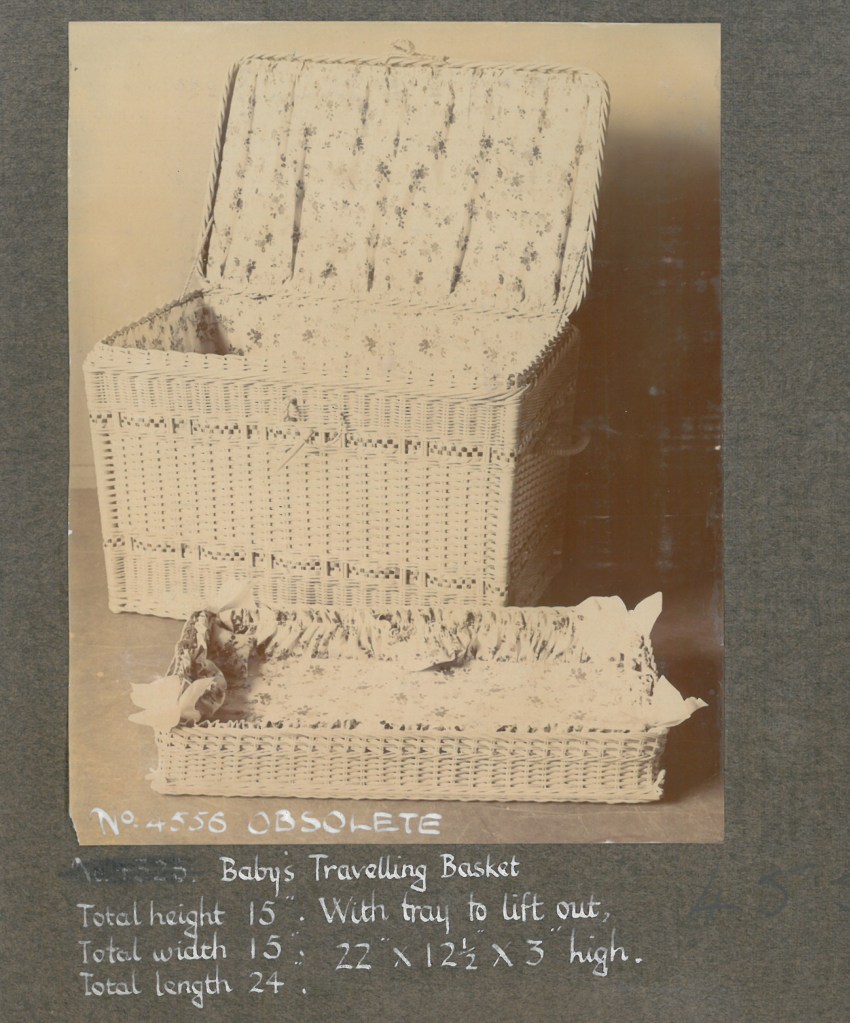 No. 4556 OBSOLETE
Baby's Travelling Basket
Total height 15". With tray to lift out,
Total width 15". 22" X 12½" X 3" high.
Total length 24".